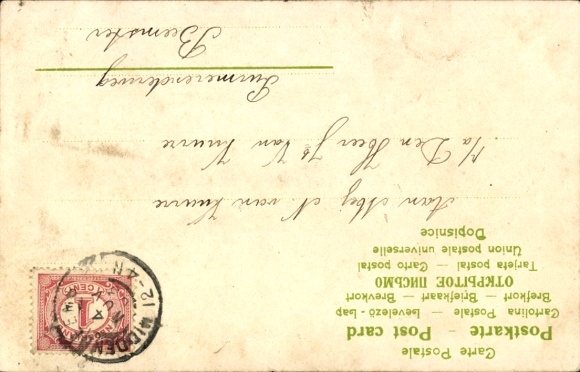 Carte Postale
Postkarte - Post card
Cartolina Postale - Levelező-Lap
Brefkort - Briefkaart - Brevkort
ОТКРЫТОЕ ПИСЬМО
Tarjeta postal - Carto postal
Union postale universelle
Dopisnice
Aan Mej N. van Knurre
p/a Den Heer Js Van Knurre
Purmerenderweg
Beemster
1
CENT
12-4N